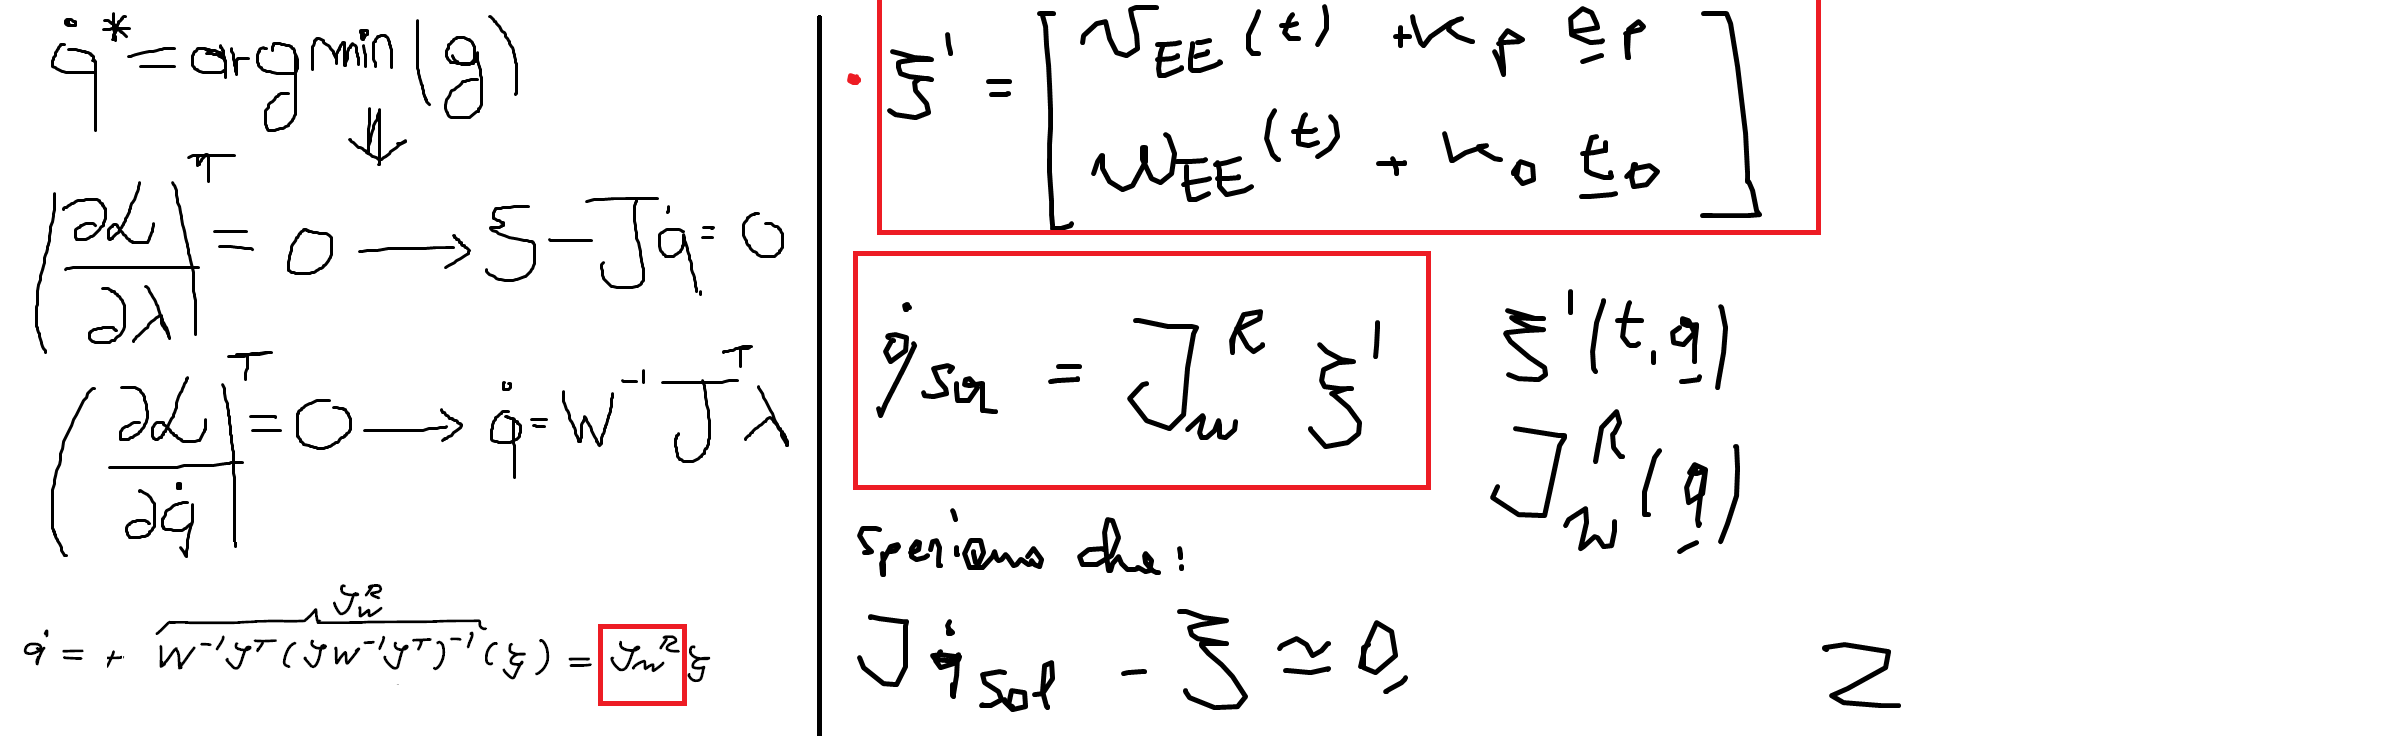 q̇* = argmin(g)
⇓
(∂ℒ/∂λ)ᵀ = 0 → ξ - Jq̇ = 0
(∂ℒ/∂q̇)ᵀ = 0 → q̇ = W⁻¹Jᵀλ
J_w^R
q̇ = + W⁻¹Jᵀ(JW⁻¹Jᵀ)⁻¹(ξ) = J_w^R ξ
ξ' = [v_EE(t) + K_p e_p
ω_EE(t) + K_o e_o]
q̇_sol = J_w^R ξ'
ξ'(t, q)
J_w^R(q)
speriamo che:
J q̇_sol - ξ ≃ 0
2